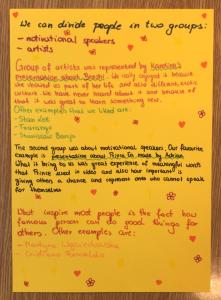 We can divide people in two groups:
- motivational speakers
- artists
Group of artists was represented by Karolina's
presentation about Beachi. We really enjoyed it because
she showed us part of her life and also different, exotic
culture. We have never heard about it and because of
that it was great to have something new.
Other examples that we liked are:
- Stan Lee
- Tearange
- Stanisław Bareja
The second group was about motivational speakers. Our favourite
example is presentation about Prince Ea made by Adrian.
What it bring to us was great experience of meaningful words
that Prince used in video and also how important is
giving others a chance and represent ones who cannot speak
for themselves
What inspire most people is the fact how
famous person can do good things for
others. Other examples are:
- Martyna Wojciechowska
- Cristiano Ronaldo